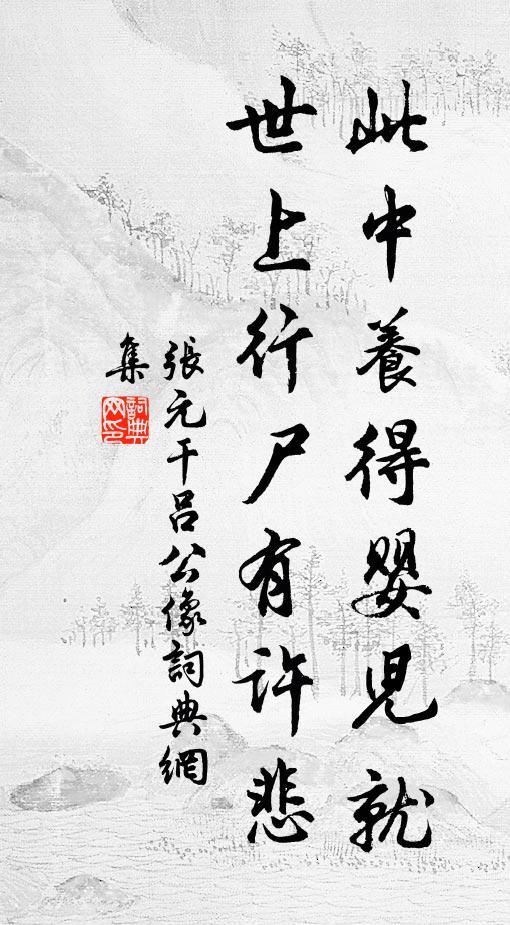 此中養得嬰兒就
世上行尸有許悲
張元干呂公像詞典網
集
詞典
网印